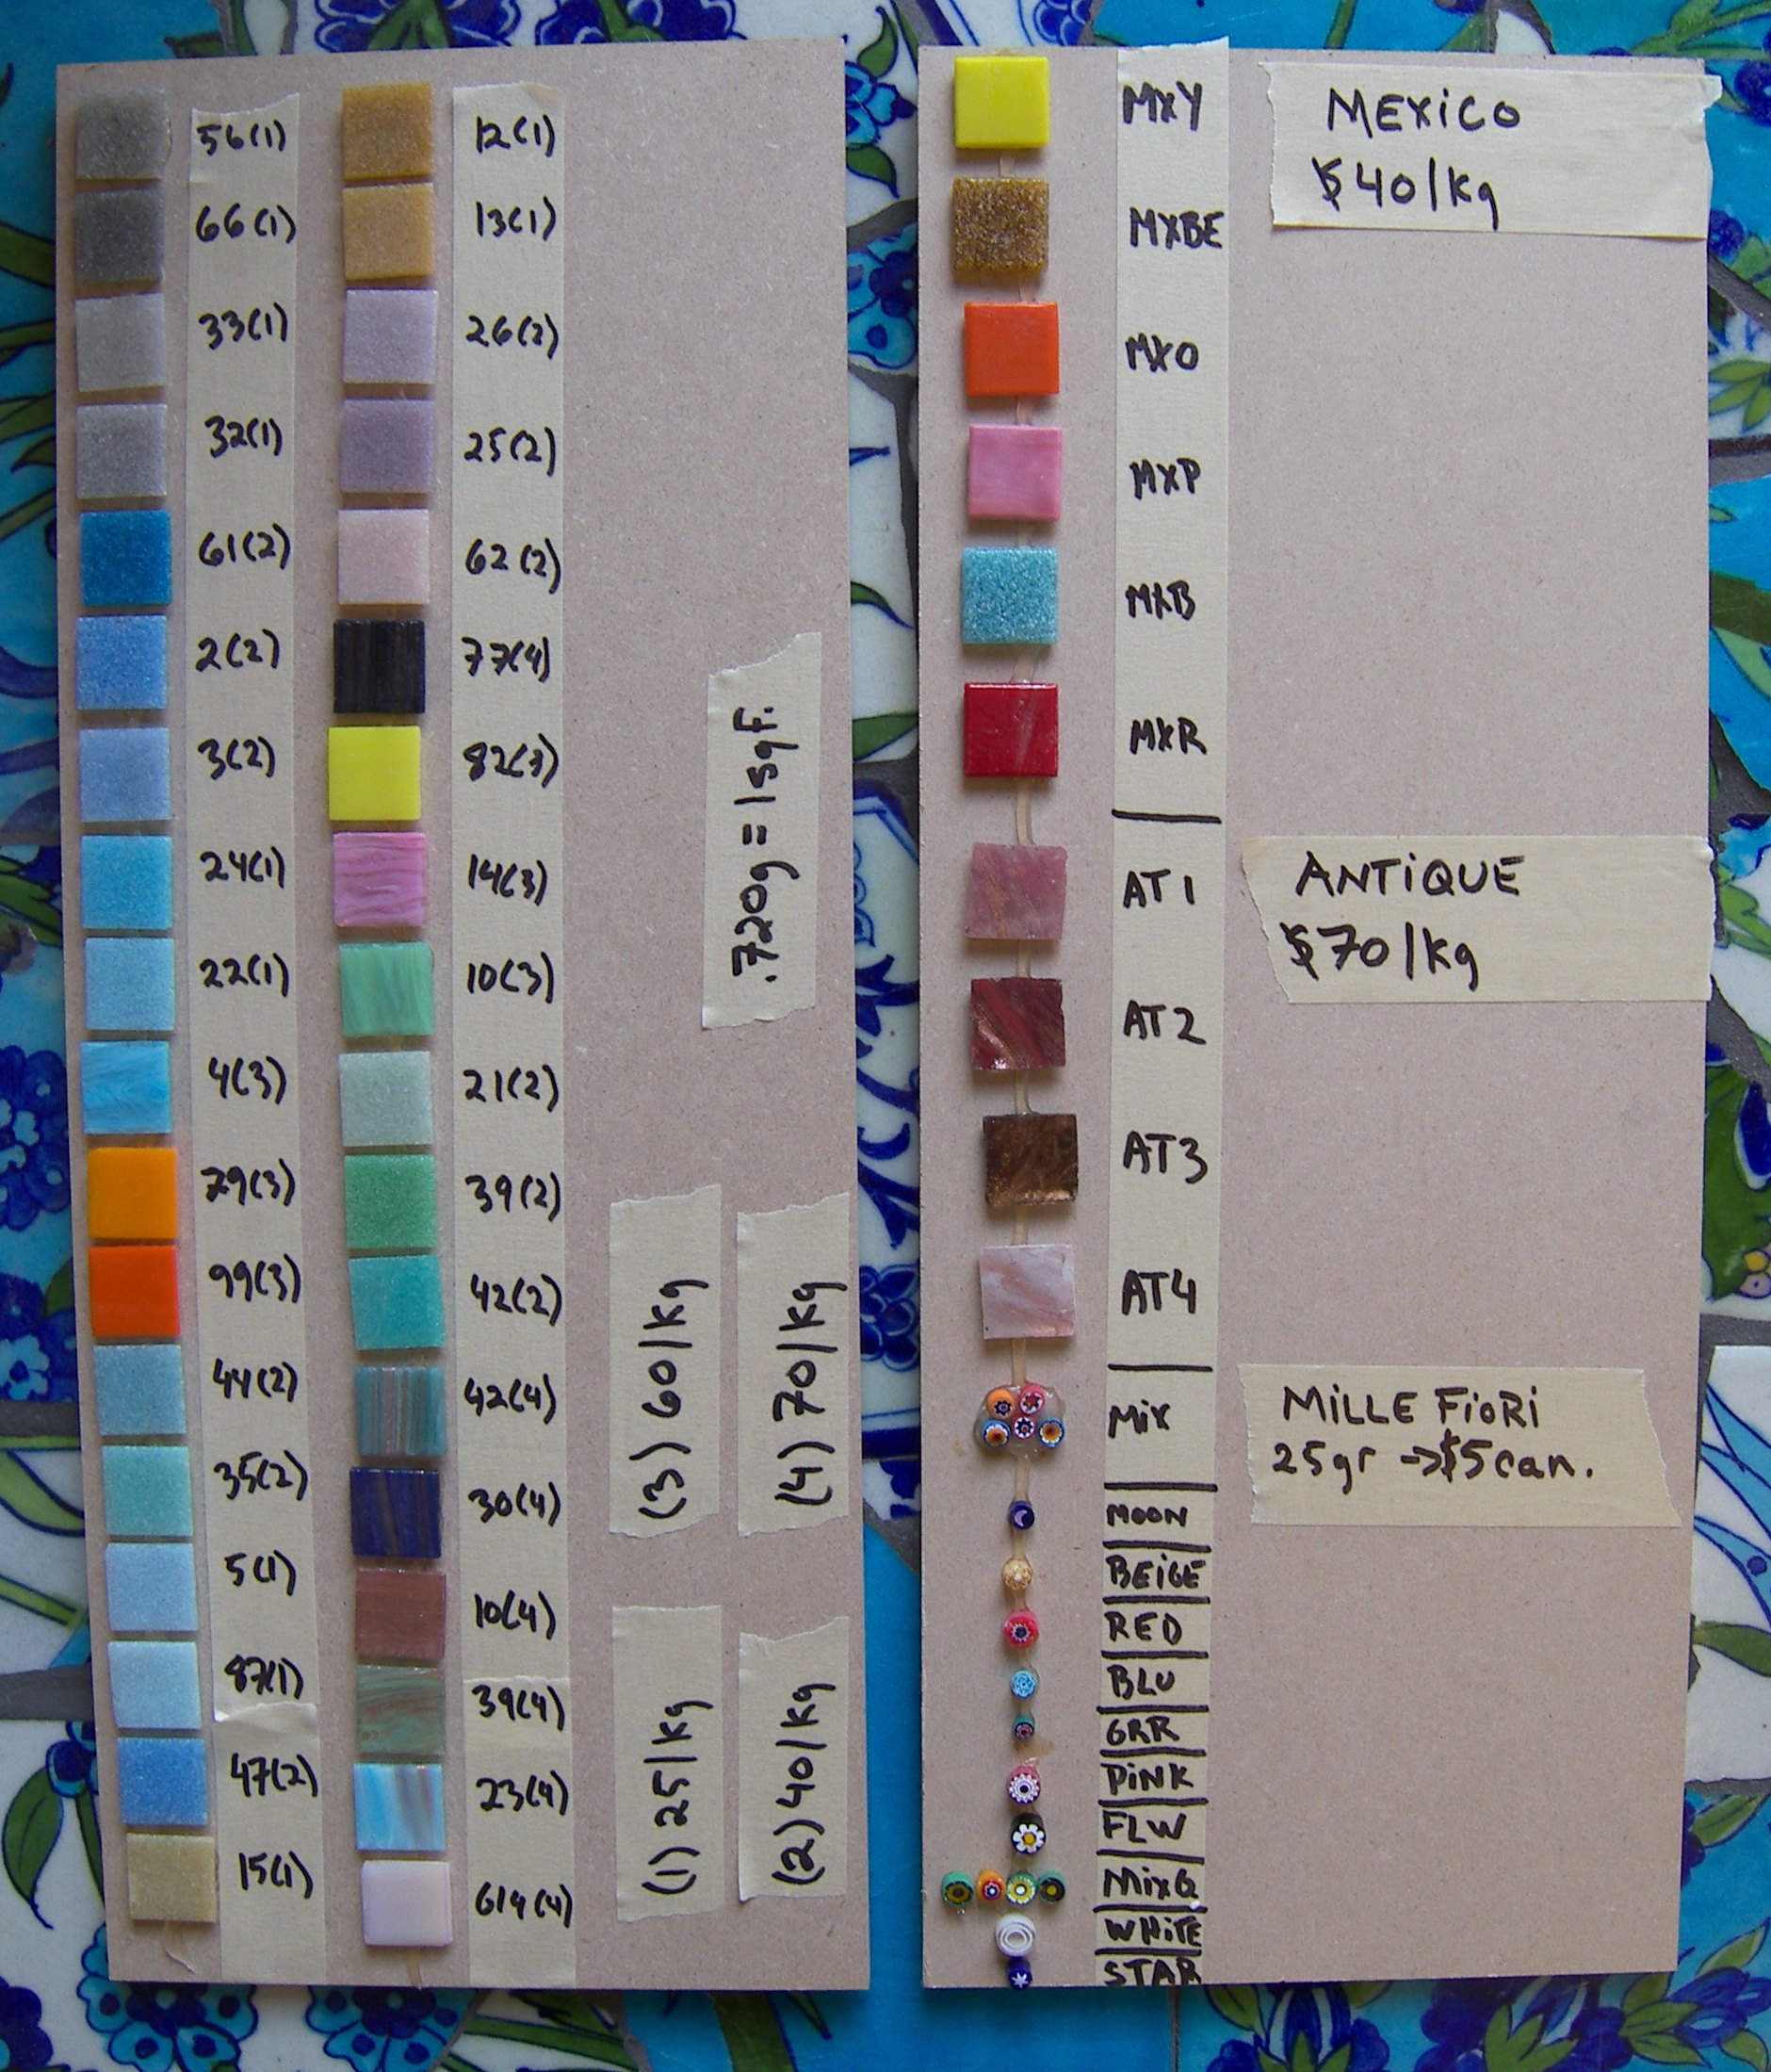 56(1)
66(1)
33(1)
32(1)
61(2)
2(2)
3(2)
24(1)
22(1)
4(3)
79(3)
99(3)
44(2)
35(2)
5(1)
87(1)
47(2)
15(1)
12(1)
13(1)
26(2)
25(2)
62(2)
77(4)
82(3)
14(3)
10(3)
21(2)
39(2)
42(2)
42(4)
30(4)
10(4)
39(4)
23(4)
614(4)
.720g = 1sqF.
(3) 60/Kg
(4) 70/Kg
(1) 25/Kg
(2) 40/Kg
MXY
MXBE
MXO
MXP
MXB
MXR
AT1
AT2
AT3
AT4
MiX
MOON
BEiGE
RED
BLU
GRR
PiNK
FLW
MiXG
WHiTE
STAR
MEXiCO
$40/Kg
ANTiQUE
$70/Kg
MiLLE FiORi
25gr -> $5 can.